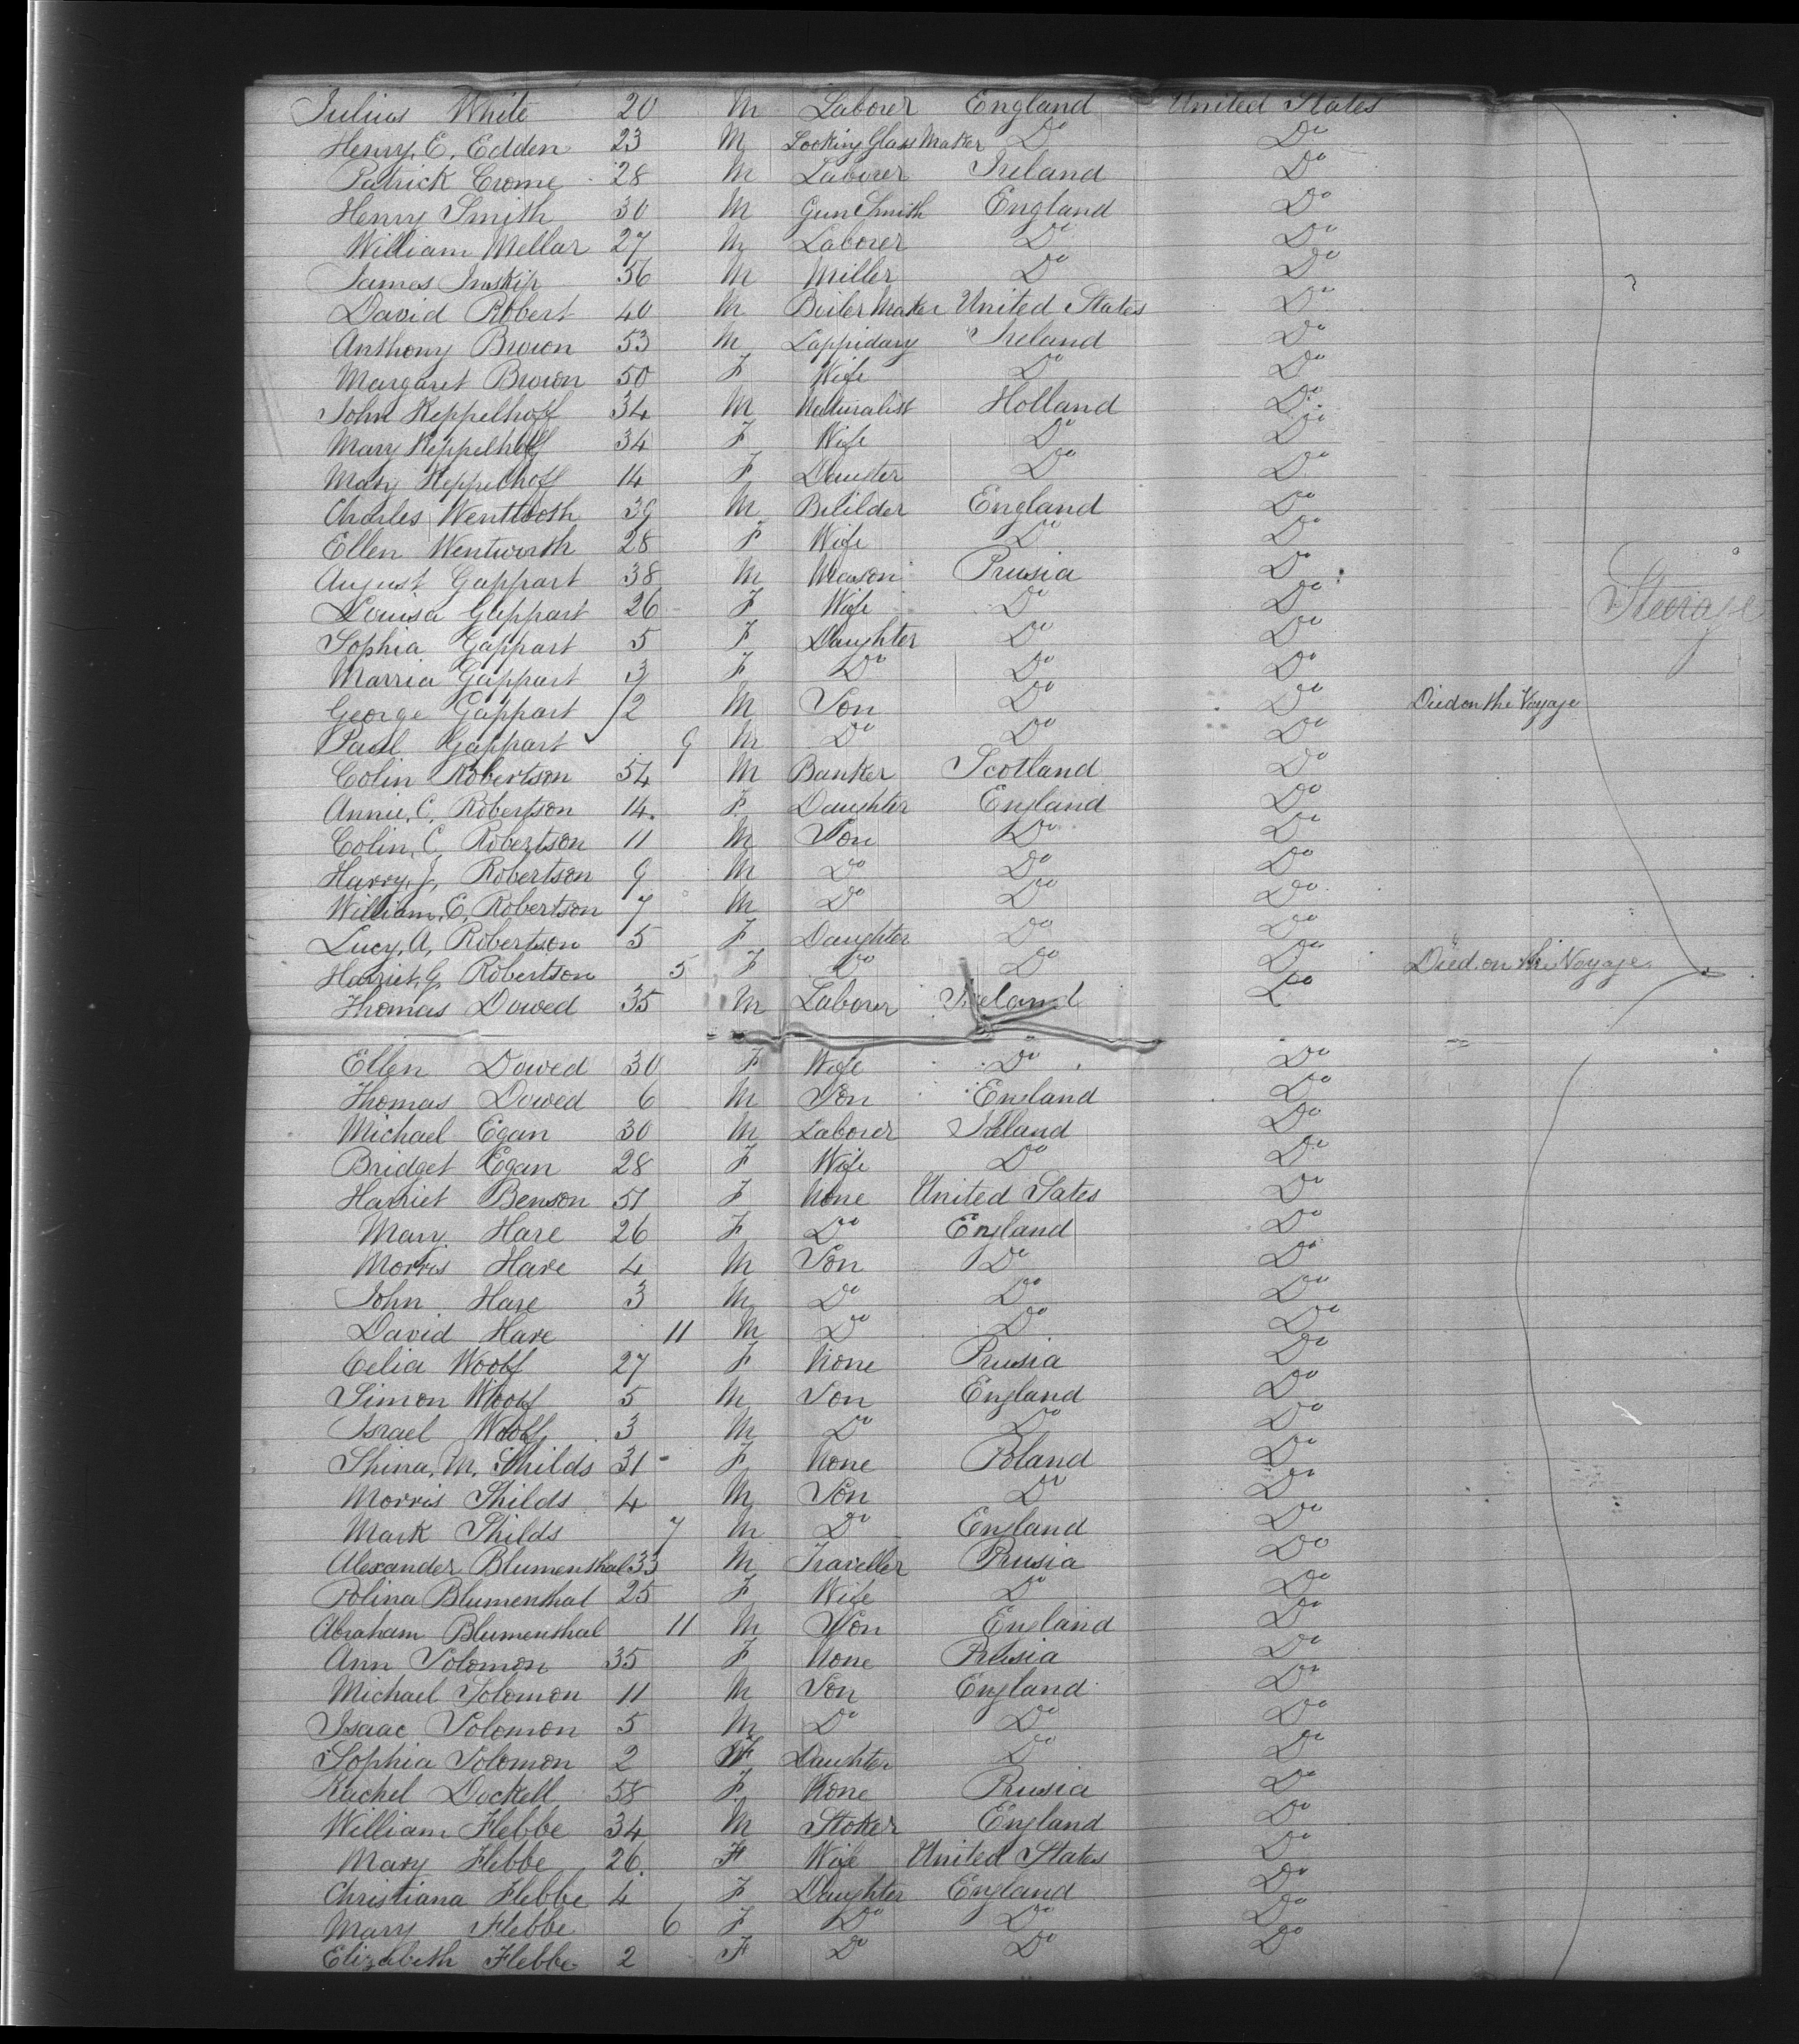 Julius White 20 M Laborer England United States
Henry, E, Edden 23 M Looking Glass Maker Do Do
Patrick Crome 28 M Laborer Ireland Do
Henry Smith 30 M Gun Smith England Do
William Mellar 27 M Laborer Do Do
James Inskip 36 M Miller Do Do
David Robert 40 M Boiler Maker United States Do
Anthony Brown 53 M Lappidary Ireland Do
Margaret Brown 50 F Wife Do Do
John Keppelhoff 34 M Naturalist Holland Do
Mary Keppelhoff 34 F Wife Do Do
Mary Keppelhoff 14 F Dauter Do Do
Charles Wentworth 39 M Biulder England Do
Ellen Wentworth 28 F Wife Do Do
August Gappart 38 M Mason Prusia Do
Louisa Gappart 26 F Wife Do Do
Steerage
Sophia Gappart 5 F Daughter Do Do
Marria Gappart 3 F Do Do Do
George Gappart 2 M Son Do Do Died on the Voyage
Paul Gappart 9 M Do Do Do
Colin Robertson 54 M Banker Scotland Do
Annie, C, Robertson 14 F Daughter England Do
Colin, C, Robertson 11 M Son Do Do
Harry, J, Robertson 9 M Do Do Do
William, E, Robertson 7 M Do Do Do
Lucy, A, Robertson 5 F Daughter Do Do
Harriet, G, Robertson 5 F Do Do Do Died on the Voyage
Thomas Dowed 35 M Laborer Ireland Do
Ellen Dowed 30 F Wife Do Do
Thomas Dowed 6 M Son England Do
Michael Egan 30 M Laborer Ireland Do
Bridget Egan 28 F Wife Do Do
Harriet Benson 51 F None United States Do
Mary Hare 26 F Do England Do
Morris Hare 4 M Son Do Do
John Hare 3 M Do Do Do
David Hare 11 M Do Do Do
Celia Woolf 27 F None Prusia Do
Simon Woolf 5 M Son England Do
Israel Woolf 3 M Do Do Do
Shina, M, Shilds 31 F None Poland Do
Morris Shilds 4 M Son Do Do
Mark Shilds 7 M Do England Do
Alexander Blumenthal 33 M Traveller Prusia Do
Polina Blumenthal 25 F Wife Do Do
Abraham Blumenthal 11 M Son England Do
Ann Solomon 35 F None Prusia Do
Michael Solomon 11 M Son England Do
Isaac Solomon 5 M Do Do Do
Sophia Solomon 2 F Daughter Do Do
Rachel Dockell 58 F None Prusia Do
William Flebbe 34 M Stoker England Do
Mary Flebbe 26 F Wife United States Do
Christiana Flebbe 4 F Daughter England Do
Mary Flebbe 6 F Do Do Do
Elizabeth Flebbe 2 F Do Do Do